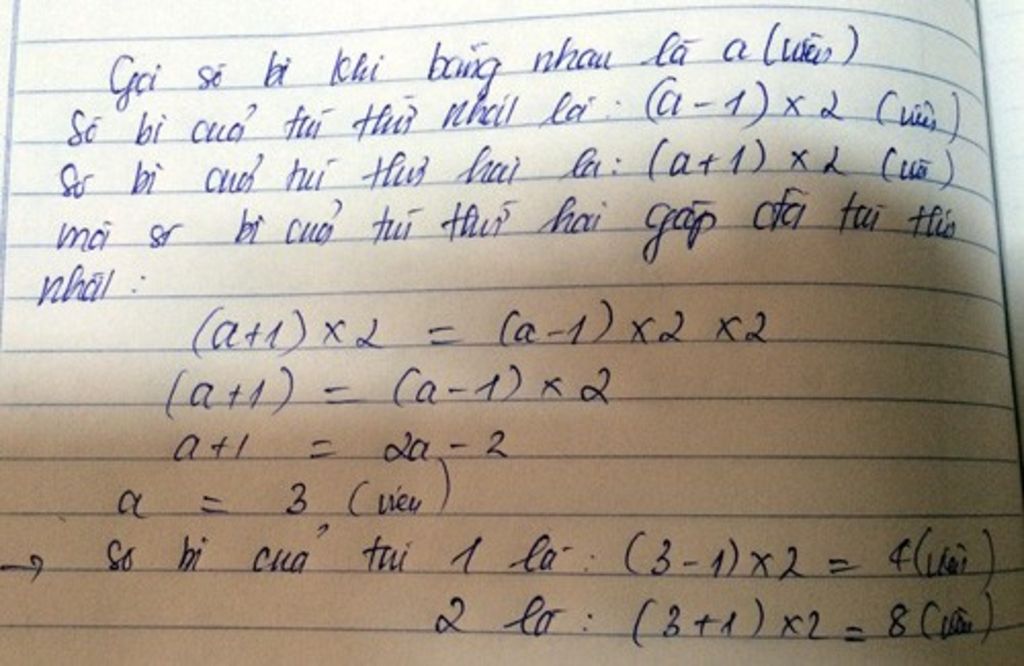 Gọi số bi khi bằng nhau là a (viên)
Số bi của túi thứ nhất là: (a - 1) × 2 (viên)
Số bi của túi thứ hai là: (a + 1) × 2 (viên)
mà số bi của túi thứ hai gấp đôi túi thứ
nhất:
(a+1) × 2 = (a-1) × 2 × 2
(a+1) = (a-1) × 2
a+1 = 2a - 2
a = 3 (viên)
→ Số bi của túi 1 là: (3-1) × 2 = 4 (viên)
2 là: (3+1) × 2 = 8 (viên)